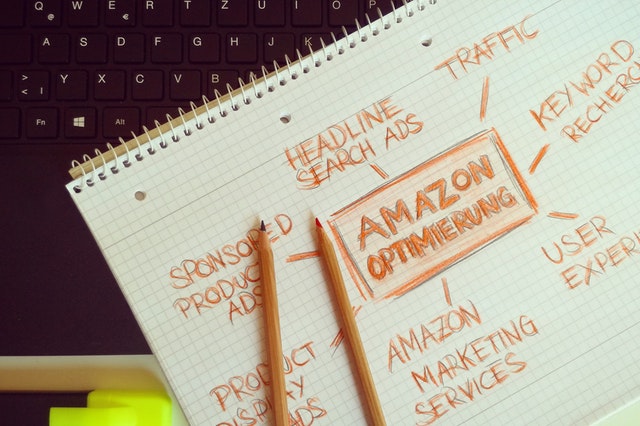 Q W E R T Z U I O P
@ €
A S D F G H J K
> Y X C V B
<
Fn Alt
TRAFFIC
KEYWORD
RECHERC
HEADLINE
SEARCH ADS
AMAZON
OPTIMIERUNG
USER
EXPERI
SPONSORED
PRODUCT
ADS
AMAZON
MARKETING
SERVICES
PRODUCT
DISPLAY
ADS